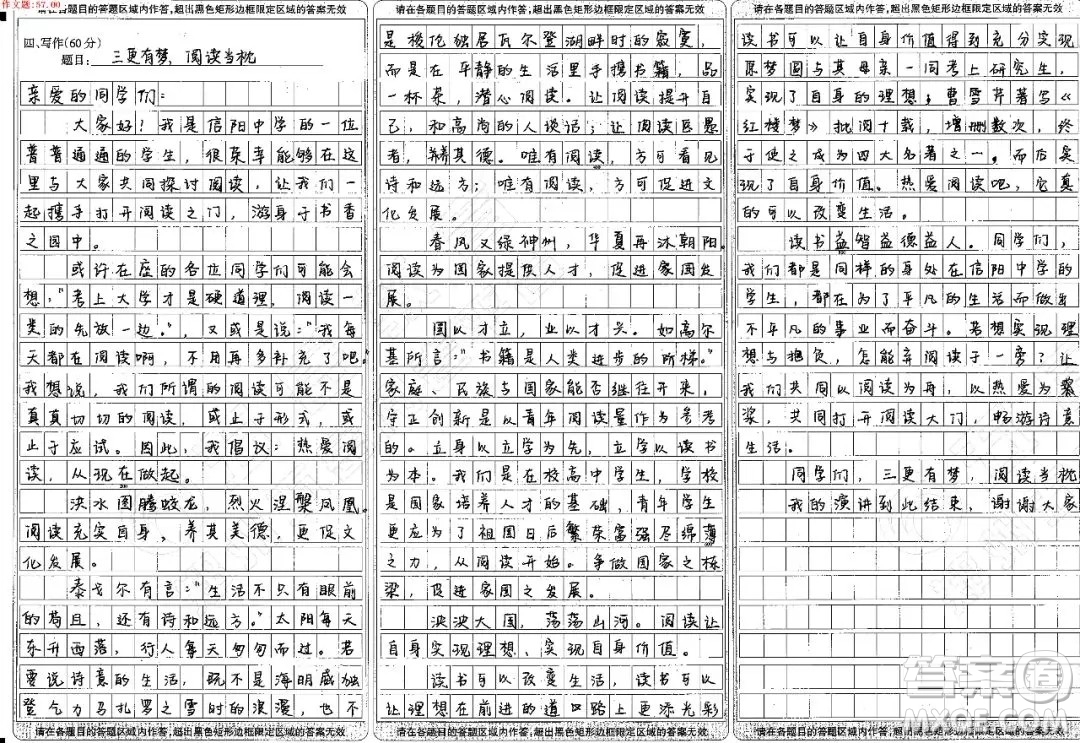 作文题:57.00
请在各题目的答题区域内作答,超出黑色矩形边框限定区域的答案无效
四、写作(60分)
题目: 三更有梦,阅读当枕
亲爱的同学们:
大家好!我是信阳中学的一位
普普通通的学生,很荣幸能够在这
里与大家共同探讨阅读,让我们一
起携手打开阅读之门,游身于书香
之园中。
或许在座的各位同学们可能会
想,"考上大学才是硬道理,阅读一
类的先放一边。",又或是说:"我每
天都在阅读啊,不用再多补充了吧。"
我想说,我们所谓的阅读可能不是
真真切切的阅读,或止于形式,或
止于应试。因此,我倡议:热爱阅
读,从现在做起。
泱水图腾蛟龙,烈火涅槃凤凰
阅读充实自身,养其美德,更促文
化发展。
泰戈尔有言:"生活不只有眼前
的苟且,还有诗和远方。"太阳每天
东升西落,行人每天匆匆而过。若
要说诗意的生活,既不是海明威独
登乞力马扎罗之雪时的浪漫,也不
请在各题目的答题区域内作答,超出黑色矩形边框限定区域的答案无效
请在各题目的答题区域内作答,超出黑色矩形边框限定区域的答案无效
是梭伦独居瓦尔登湖畔时的寂寞,
而是在平静的生活里手携书籍,品
一杯茶,潜心阅读。让阅读提升自
己,和高尚的人谈话;让阅读医愚
者,养其德。唯有阅读,方可看见
诗和远方;唯有阅读,方可促进文
化发展。
春风又绿神州,华夏再沐朝阳。
阅读为国家提供人才,促进家国发
展。
国以才立,业以才兴。如高尔
基所言:"书籍是人类进步的阶梯。"
家庭、民族与国家能否继往开来,
守正创新是以青年阅读量作为参考
的。立身以立学为先,立学以读书
为本。我们是在校高中学生,学校
是国家培养人才的基础,青年学生
更应为了祖国日后繁荣富强尽绵薄
之力,从阅读开始。争做国家之栋
梁,促进家国之发展。
泱泱大国,荡荡山河。阅读让
自身实现理想、实现自身价值。
读书可以改变生活,读书可以
让理想在前进的道路上更添光彩
请在各题目的答题区域内作答,超出黑色矩形边框限定区域的答案无效
请在各题目的答题区域内作答,超出黑色矩形边框限定区域的答案无效
读书可以让自身价值得到充分实现
原梦圆与其母亲一同考上研究生,
实现了自身的理想;曹雪芹著写《
红楼梦》批阅十载,增删数次,终
于使之成为四大名著之一,而后实
现了自身价值。热爱阅读吧,它真
的可以改变生活。
读书益智益德益人。同学们,
我们都是同样的身处在信阳中学的
学生,都在为了平凡的生活而做出
不平凡的事业而奋斗。若想实现理
想与抱负,怎能弃阅读于一旁?让
我们共同以阅读为舟,以热爱为桨
桨,共同打开阅读大门,畅游诗意
生活。
同学们,三更有梦,阅读当枕
我的演讲到此结束,谢谢大家
请在各题目的答题区域内作答,超出黑色矩形边框限定区域的答案无效
答案圈
MXQE.COM